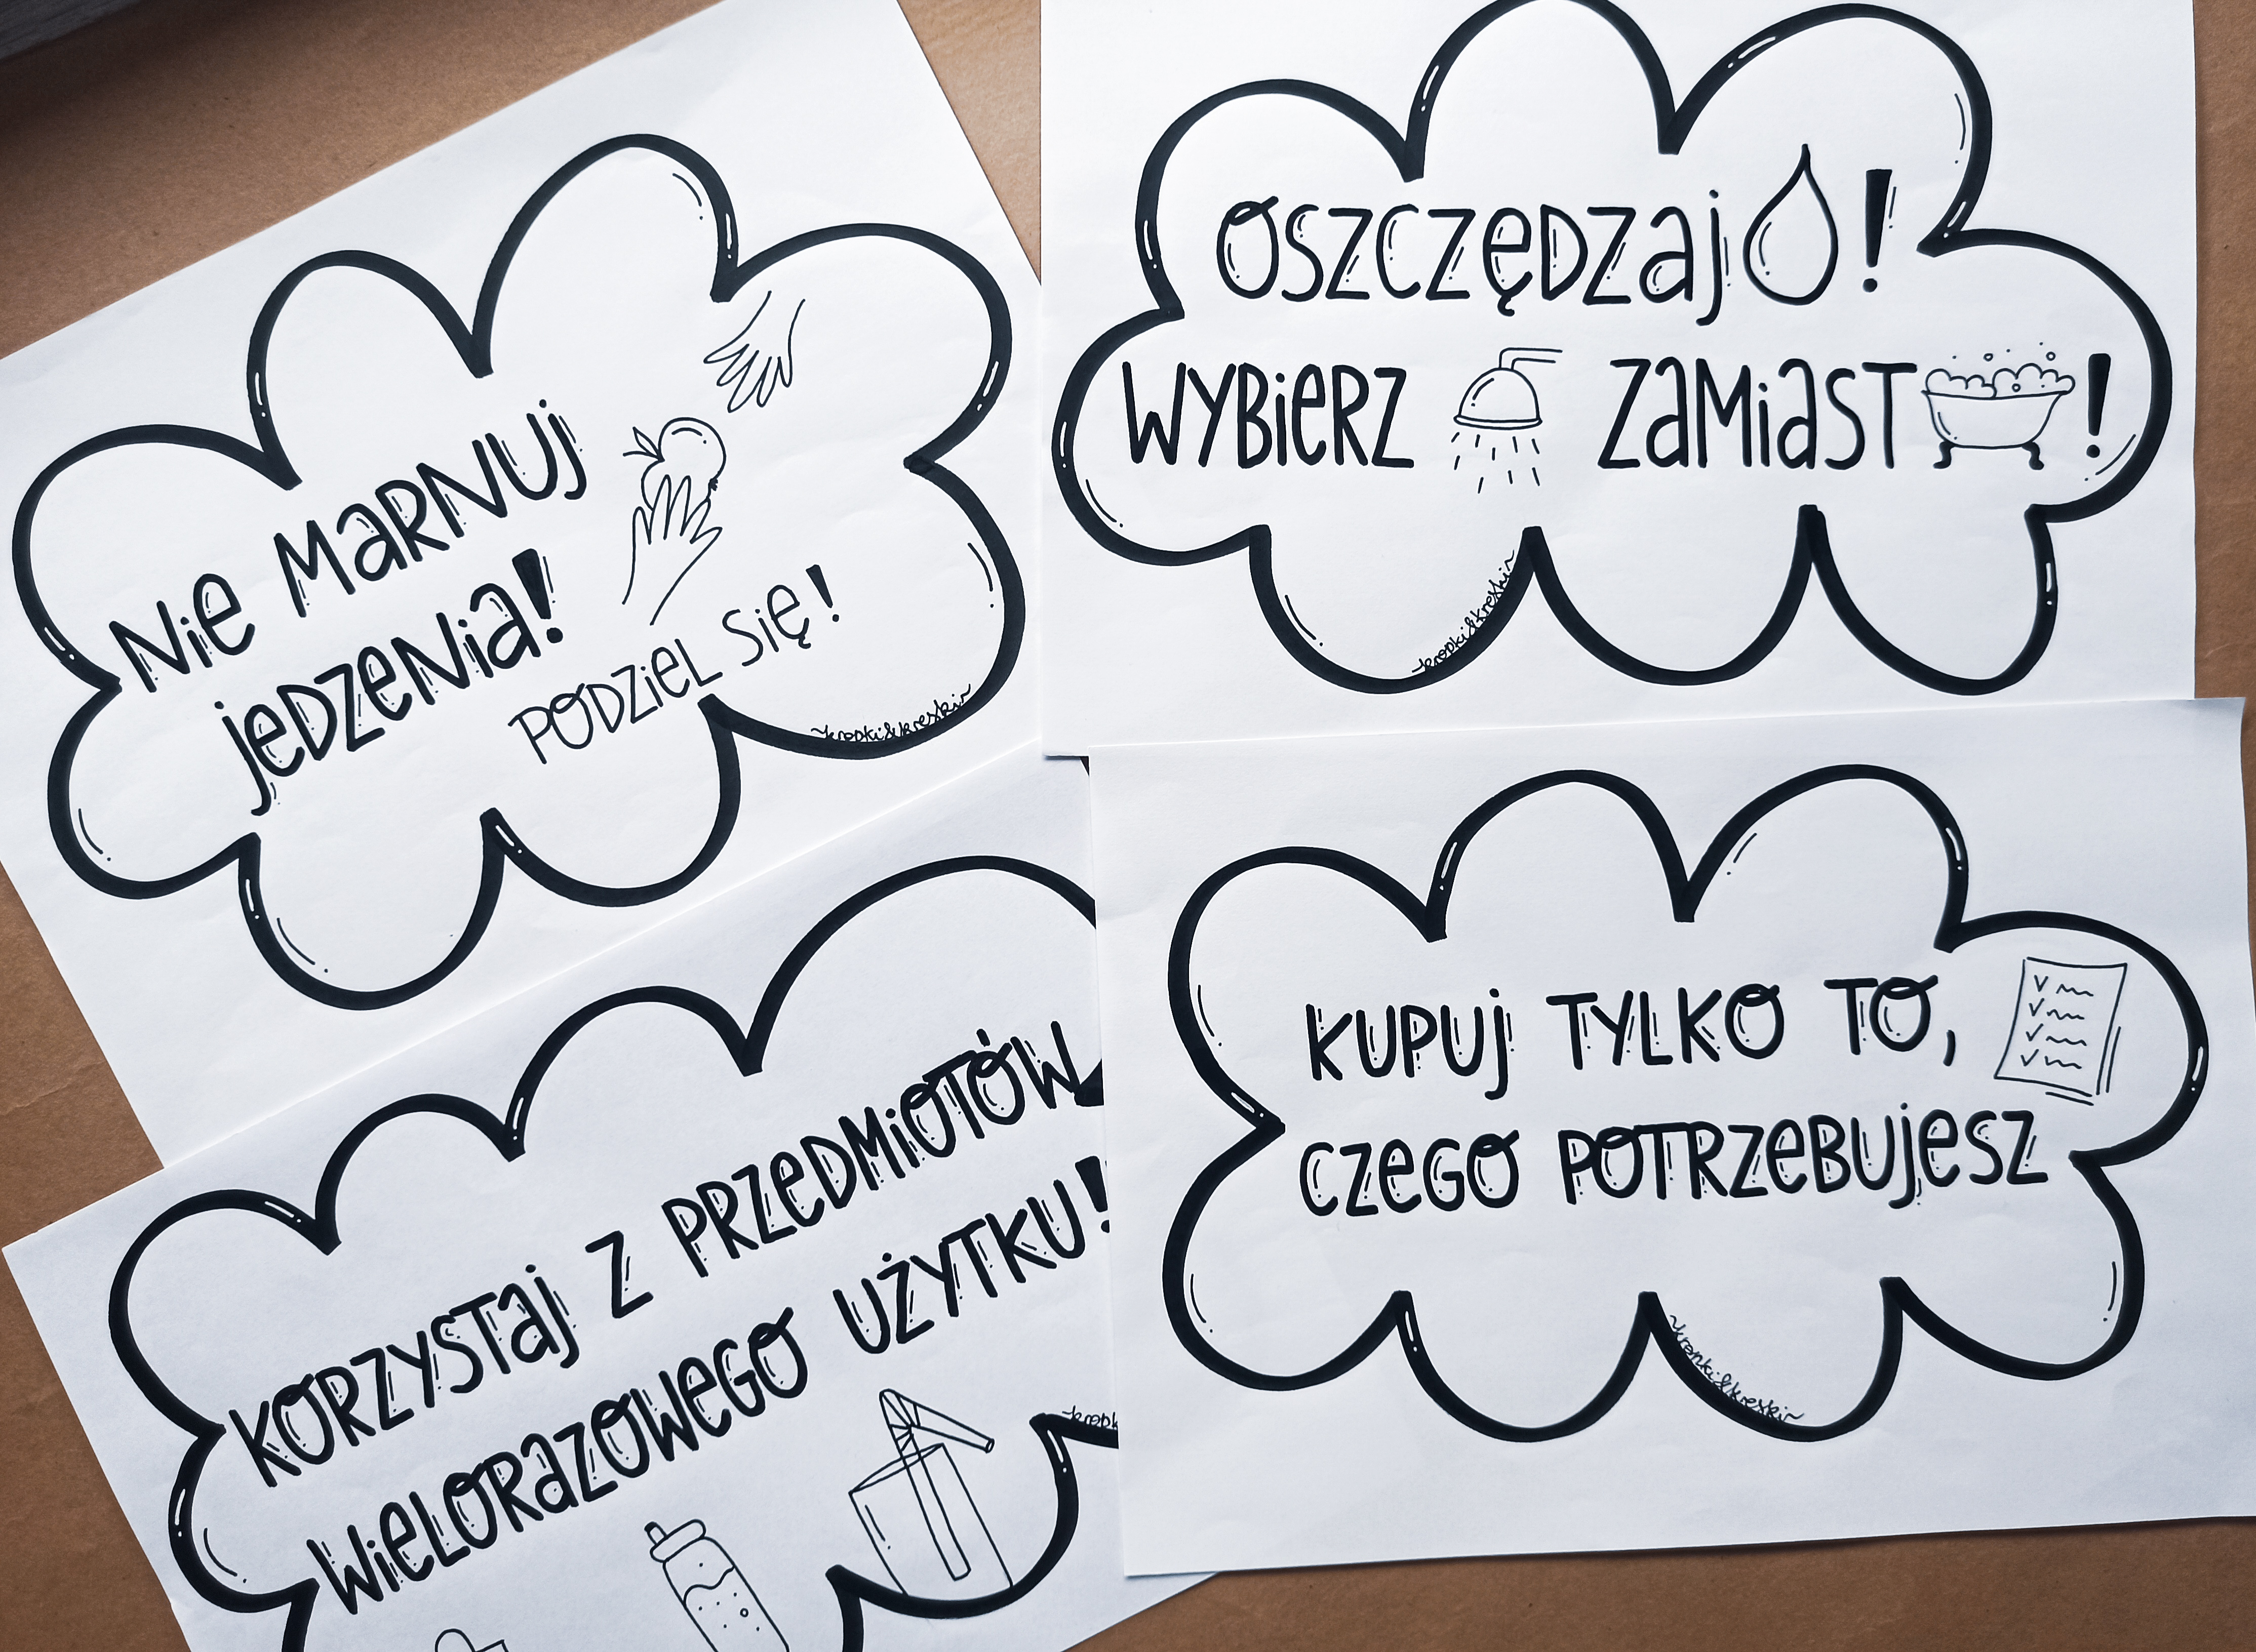 Nie marnuj
jedzenia!
Podziel się!
~kropki&kreski~
Oszczędzaj !
Wybierz zamiast !
~kropki&kreski~
Korzystaj z przedmiotów
wielorazowego użytku!
~kropk
Kupuj tylko to,
czego potrzebujesz
~kropki&kreski~